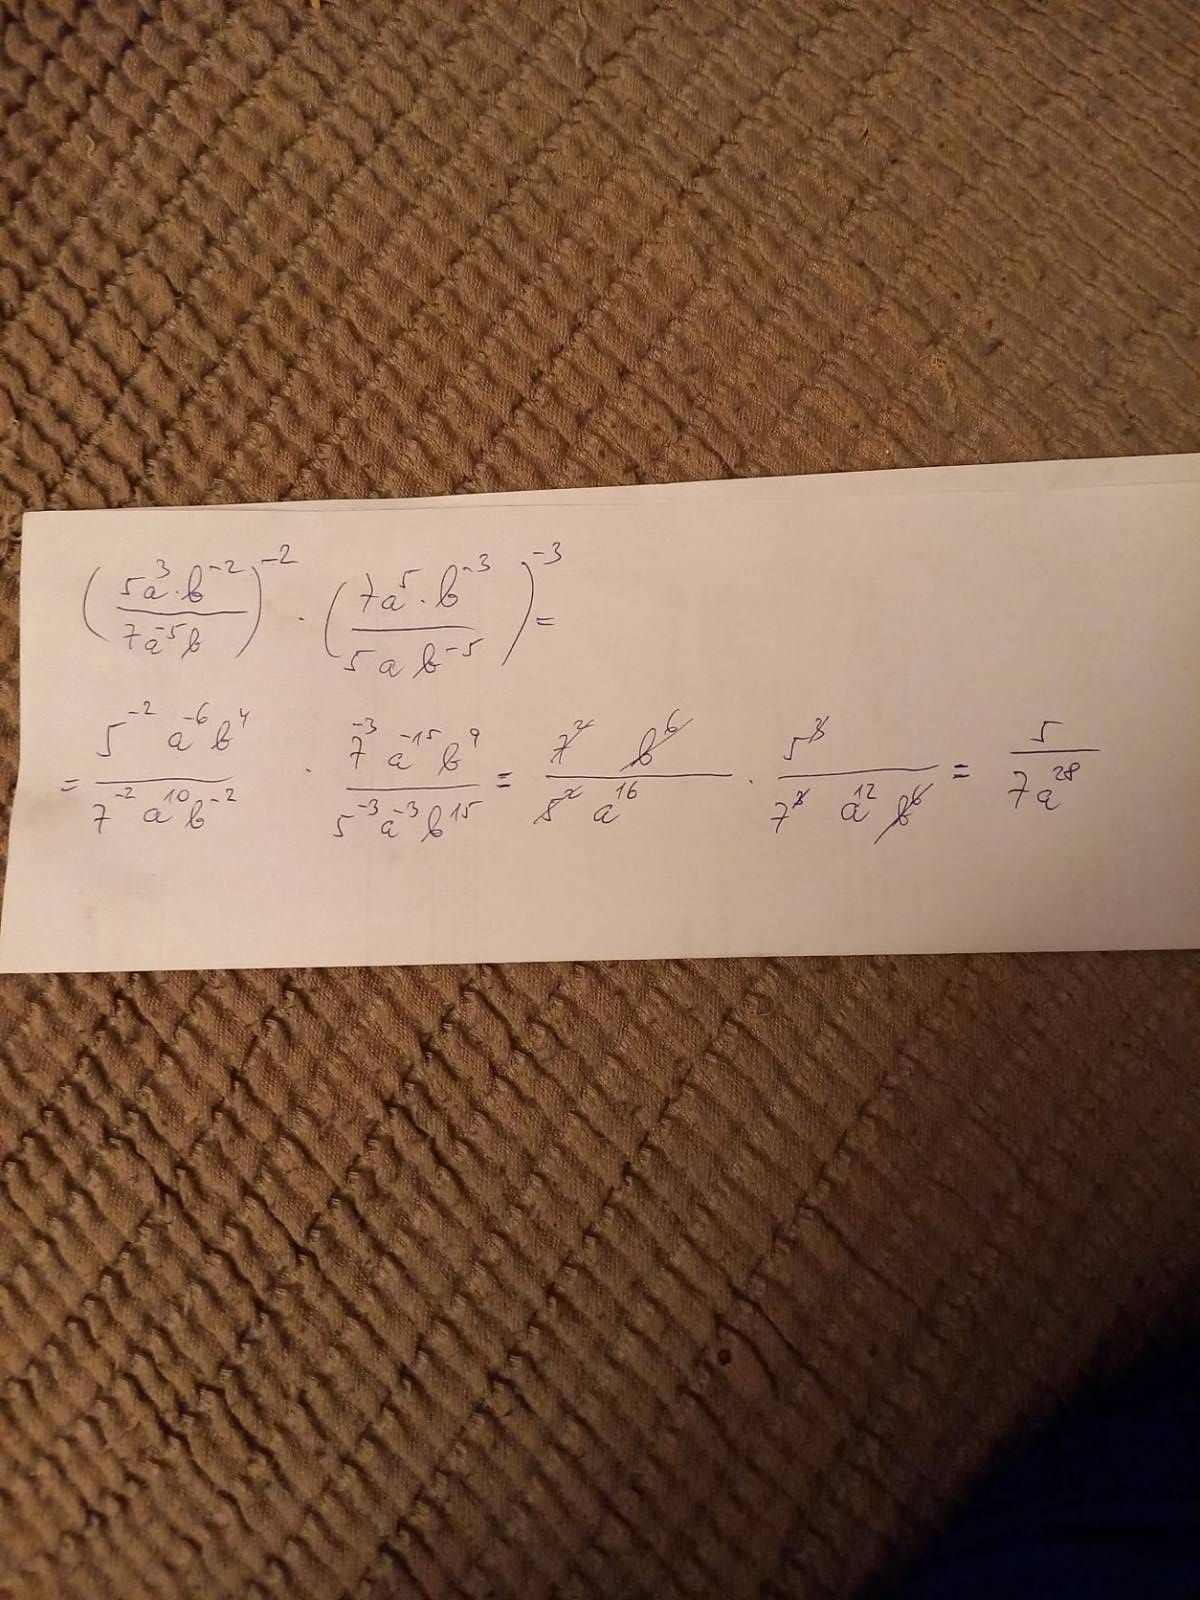 (5a³·b⁻²/7a⁻⁵b)⁻² · (7a⁵·b⁻³/5ab⁻⁵)⁻³ =
= 5⁻²a⁻⁶b⁴/7⁻²a¹⁰b⁻² · 7⁻³a⁻¹⁵b⁹/5⁻³a⁻³b¹⁵ = 7²b⁶/5²a¹⁶ · 5³/7³a¹²b⁶ = 5/7a²⁸